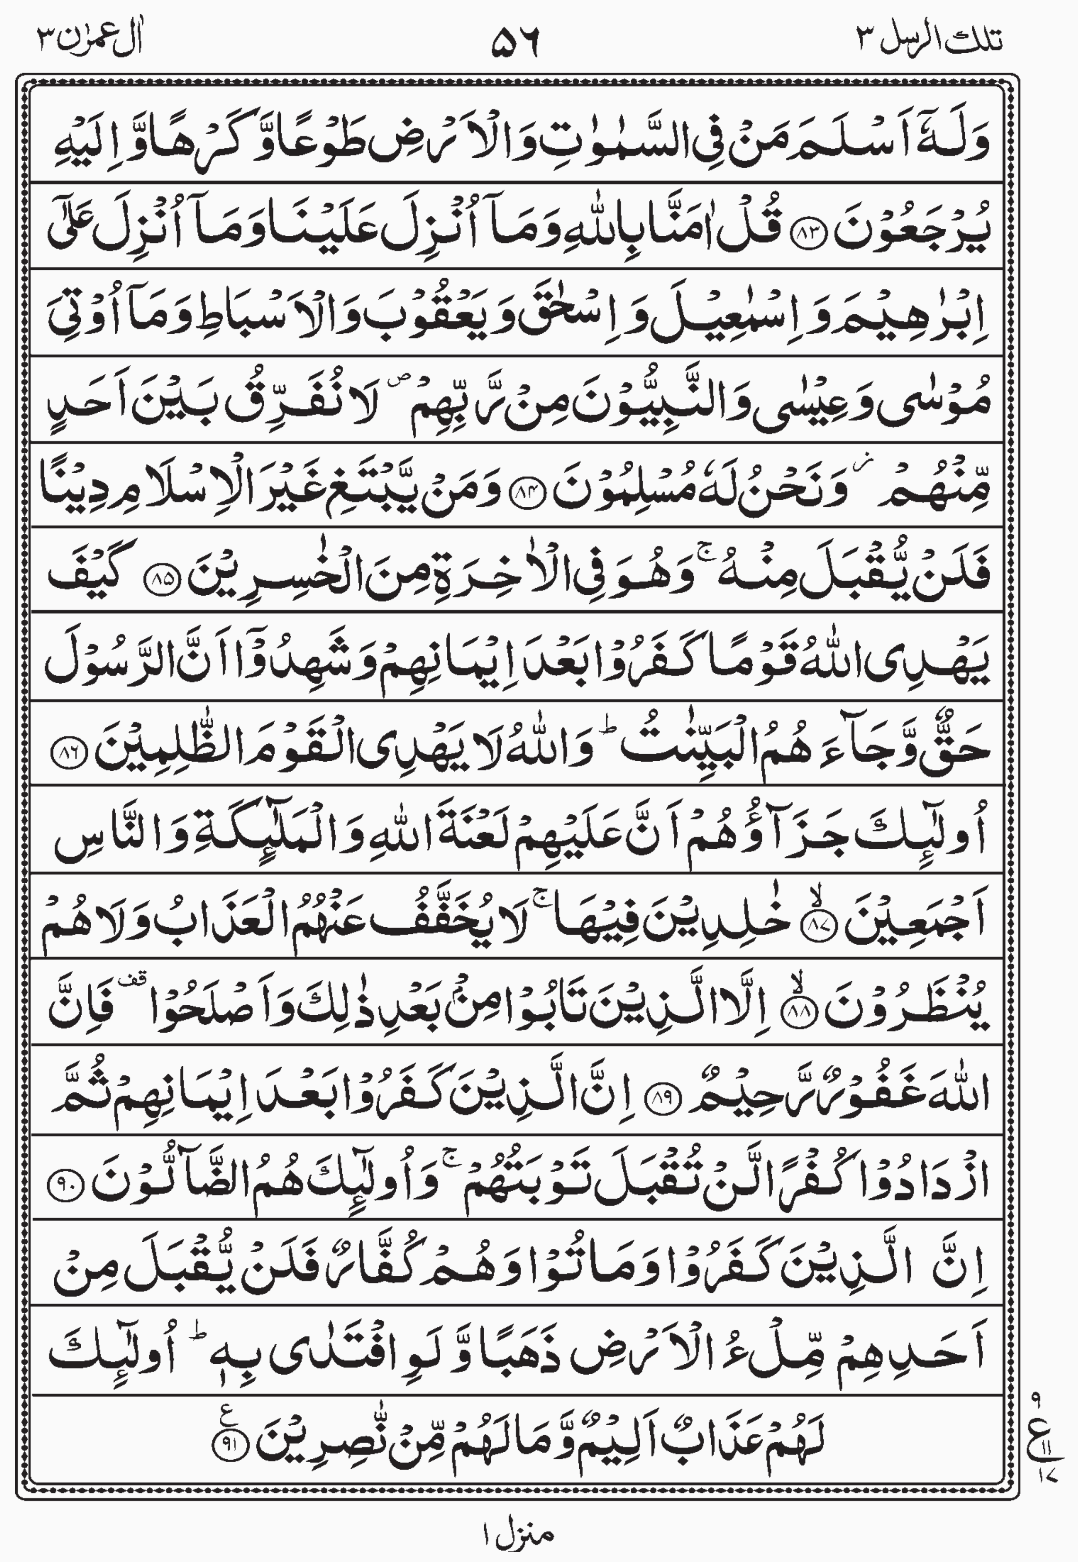 تلك الرسل ۳ ۵۶ اٰل عمرٰن ۳
وَلَهٗۤ اَسْلَمَ مَنْ فِی السَّمٰوٰتِ وَالْاَرْضِ طَوْعًا وَّكَرْهًا وَّاِلَیْهِ
یُرْجَعُوْنَ ﴿۸۳﴾ قُلْ اٰمَنَّا بِاللّٰهِ وَمَاۤ اُنْزِلَ عَلَیْنَا وَمَاۤ اُنْزِلَ عَلٰۤی
اِبْرٰهِیْمَ وَاِسْمٰعِیْلَ وَاِسْحٰقَ وَیَعْقُوْبَ وَالْاَسْبَاطِ وَمَاۤ اُوْتِیَ
مُوْسٰی وَعِیْسٰی وَالنَّبِیُّوْنَ مِنْ رَّبِّهِمْ ۪ لَا نُفَرِّقُ بَیْنَ اَحَدٍ
مِّنْهُمْ ؗ وَنَحْنُ لَهٗ مُسْلِمُوْنَ ﴿۸۴﴾ وَمَنْ یَّبْتَغِ غَیْرَ الْاِسْلَامِ دِیْنًا
فَلَنْ یُّقْبَلَ مِنْهُ ۚ وَهُوَ فِی الْاٰخِرَةِ مِنَ الْخٰسِرِیْنَ ﴿۸۵﴾ كَیْفَ
یَهْدِی اللّٰهُ قَوْمًا كَفَرُوْا بَعْدَ اِیْمَانِهِمْ وَشَهِدُوْۤا اَنَّ الرَّسُوْلَ
حَقٌّ وَّجَآءَهُمُ الْبَیِّنٰتُ ؕ وَاللّٰهُ لَا یَهْدِی الْقَوْمَ الظّٰلِمِیْنَ ﴿۸۶﴾
اُولٰٓئِكَ جَزَآؤُهُمْ اَنَّ عَلَیْهِمْ لَعْنَةَ اللّٰهِ وَالْمَلٰٓئِكَةِ وَالنَّاسِ
اَجْمَعِیْنَ ۙ﴿۸۷﴾ خٰلِدِیْنَ فِیْهَا ۚ لَا یُخَفَّفُ عَنْهُمُ الْعَذَابُ وَلَا هُمْ
یُنْظَرُوْنَ ۙ﴿۸۸﴾ اِلَّا الَّذِیْنَ تَابُوْا مِنْۢ بَعْدِ ذٰلِكَ وَاَصْلَحُوْا قف فَاِنَّ
اللّٰهَ غَفُوْرٌ رَّحِیْمٌ ﴿۸۹﴾ اِنَّ الَّذِیْنَ كَفَرُوْا بَعْدَ اِیْمَانِهِمْ ثُمَّ
ازْدَادُوْا كُفْرًا لَّنْ تُقْبَلَ تَوْبَتُهُمْ ۚ وَاُولٰٓئِكَ هُمُ الضَّآلُّوْنَ ﴿۹۰﴾
اِنَّ الَّذِیْنَ كَفَرُوْا وَمَاتُوْا وَهُمْ كُفَّارٌ فَلَنْ یُّقْبَلَ مِنْ
اَحَدِهِمْ مِّلْءُ الْاَرْضِ ذَهَبًا وَّلَوِ افْتَدٰی بِهٖ ؕ اُولٰٓئِكَ
لَهُمْ عَذَابٌ اَلِیْمٌ وَّمَا لَهُمْ مِّنْ نّٰصِرِیْنَ ﴿۹۱﴾ ع
۹
ع
۱۱
۱۷
منزل ۱